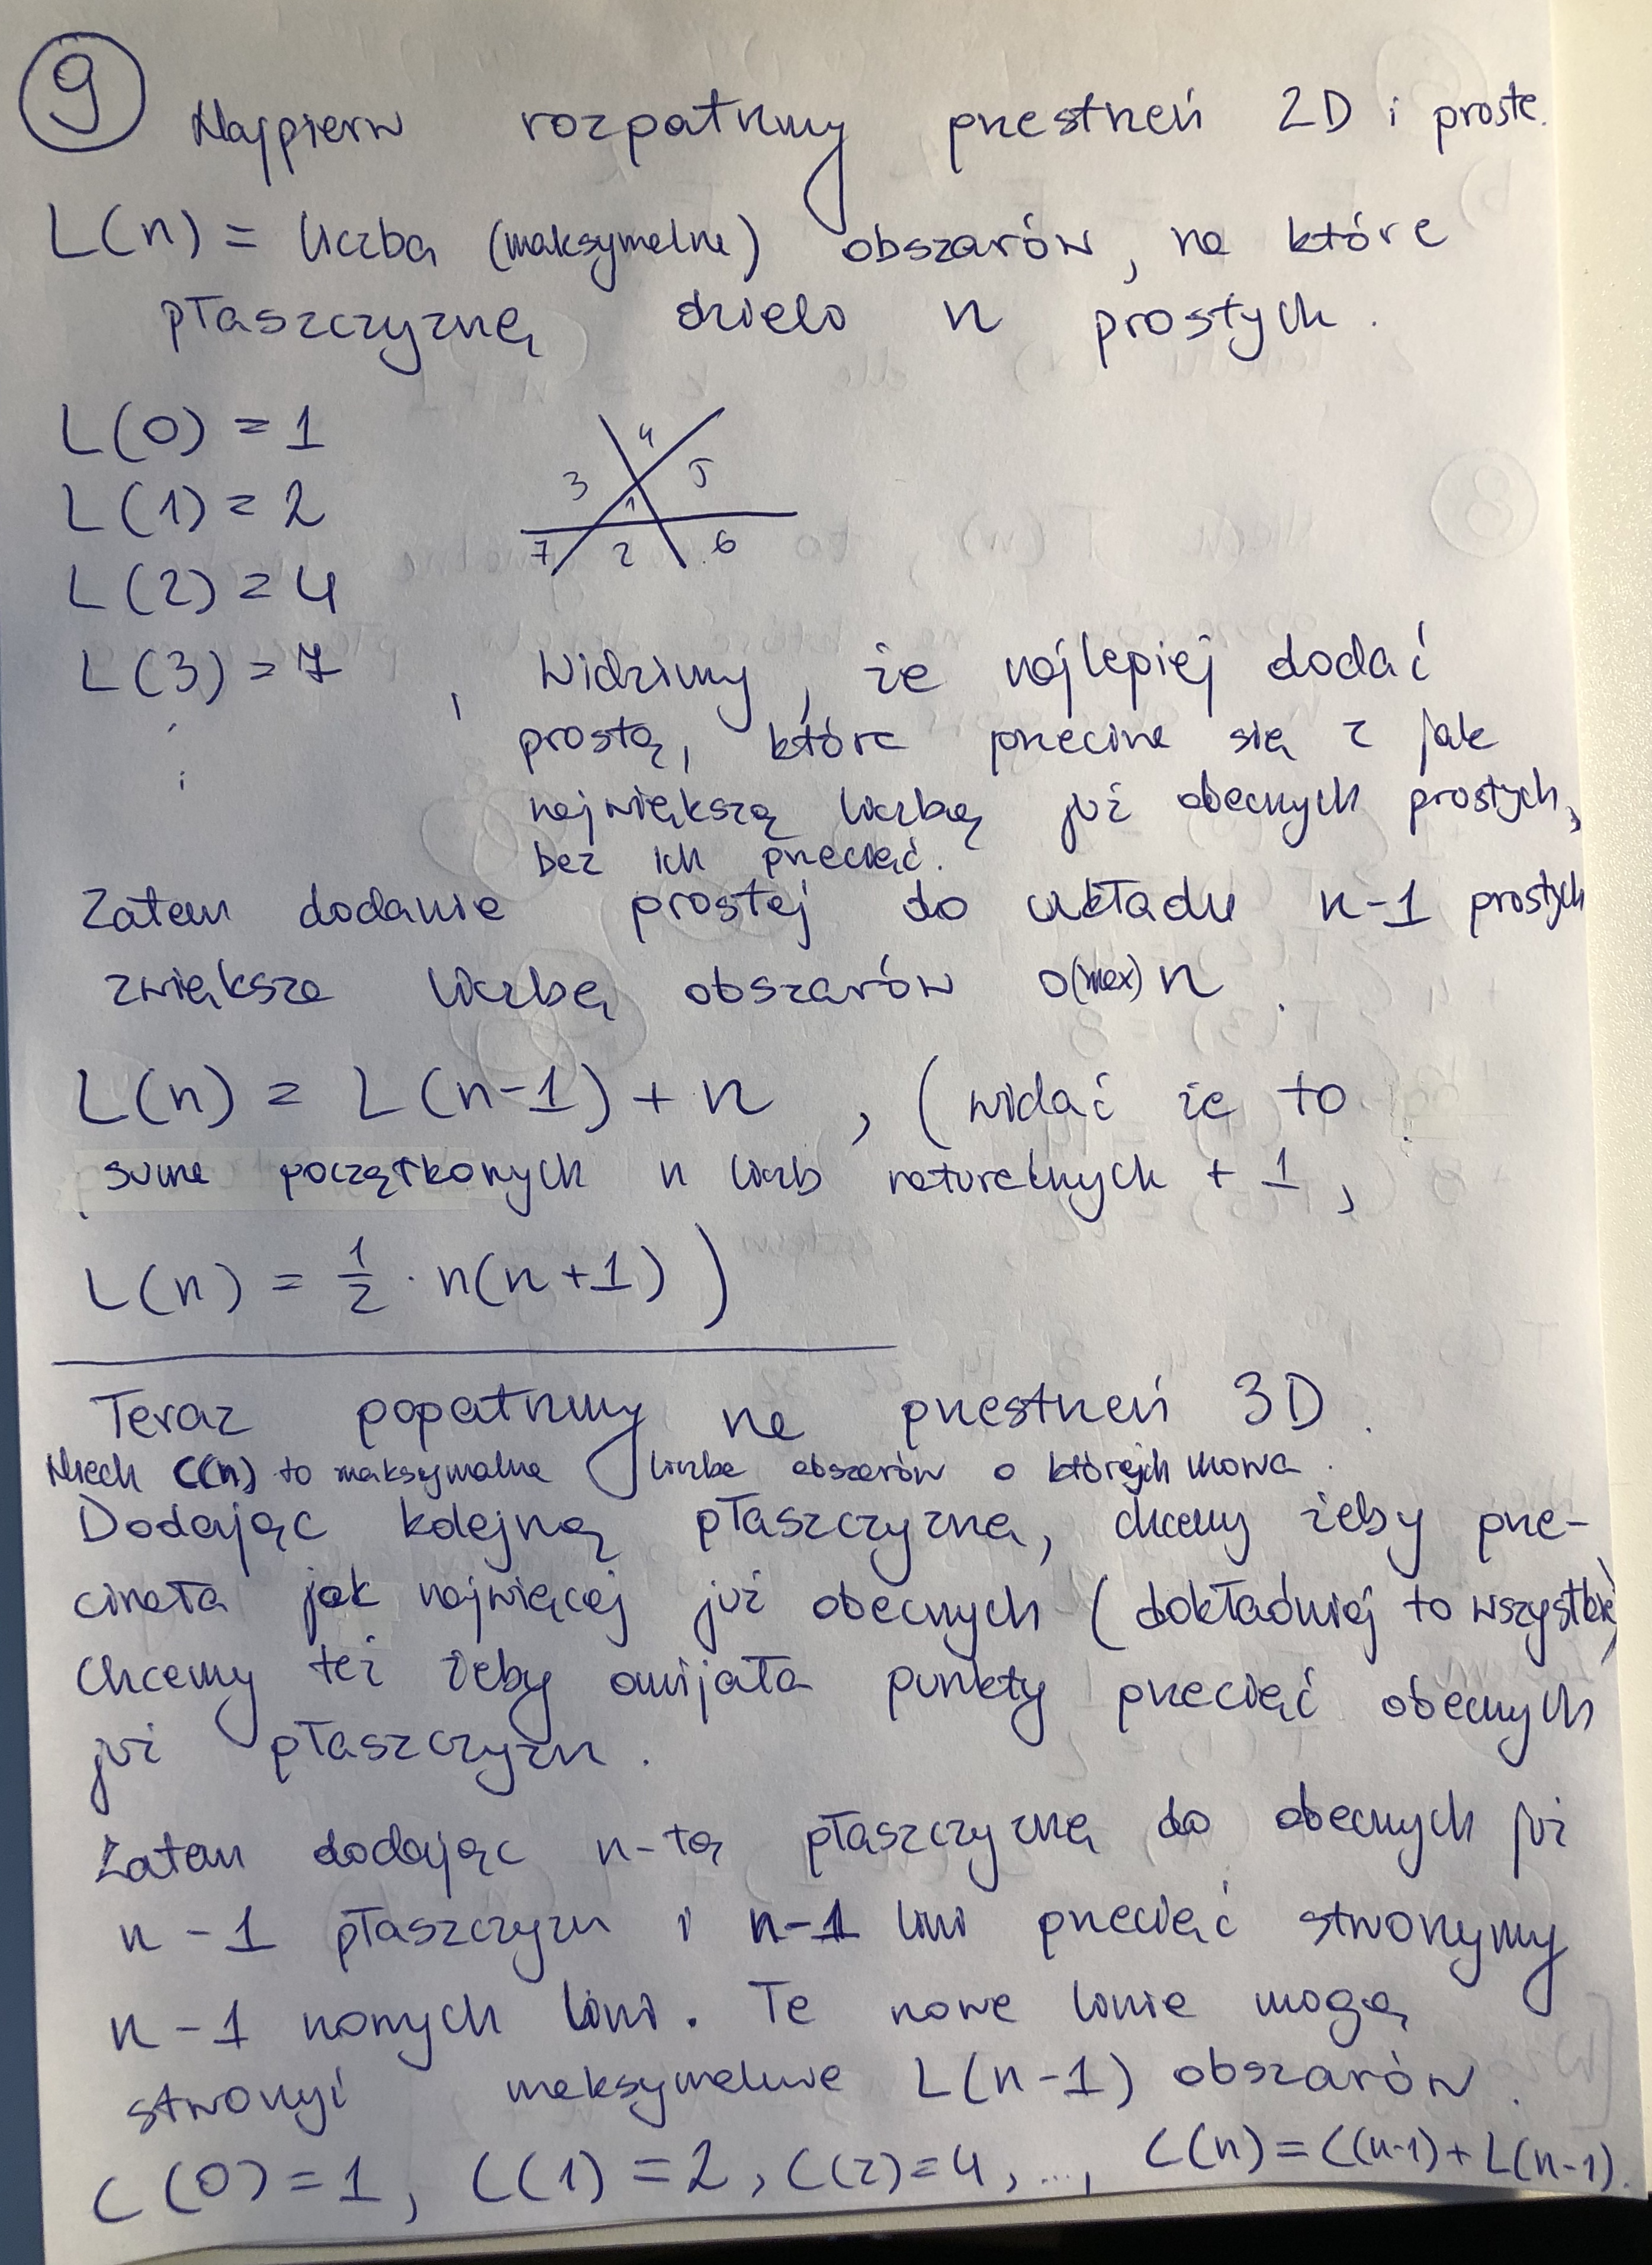 9
Najpierw rozpatrzmy przestrzeń 2D i proste.
L(n) = liczba (maksymalna) obszarów, na które
płaszczyznę dzieli n prostych.
L(0) = 1
L(1) = 2
L(2) = 4
L(3) = 7
4
3 5
1
7 2 6
, Widzimy, że najlepiej dodać
prostą, która przecina się z jak
największą liczbą już obecnych prostych,
bez ich przecięć.
Zatem dodanie prostej do układu n-1 prostych
zwiększa liczbę obszarów o(max) n.
L(n) = L(n-1) + n , (widać że to
suma początkowych n liczb naturalnych + 1,
L(n) = 1/2 · n(n+1))
Teraz popatrzmy na przestrzeń 3D.
Niech C(n) to maksymalna liczba obszarów o których mowa.
Dodając kolejną płaszczyznę, chcemy żeby prze-
cinała jak najwięcej już obecnych (dokładniej to wszystkie)
Chcemy też żeby omijała punkty przecięć obecnych
już płaszczyzn.
Zatem dodając n-tą płaszczyznę do obecnych już
n-1 płaszczyzn i n-1 lini przecięć stworzymy
n-1 nowych lini. Te nowe linie mogą
stworzyć maksymalnie L(n-1) obszarów.
C(0)=1, C(1)=2, C(2)=4, ..., C(n)=C(n-1)+L(n-1).